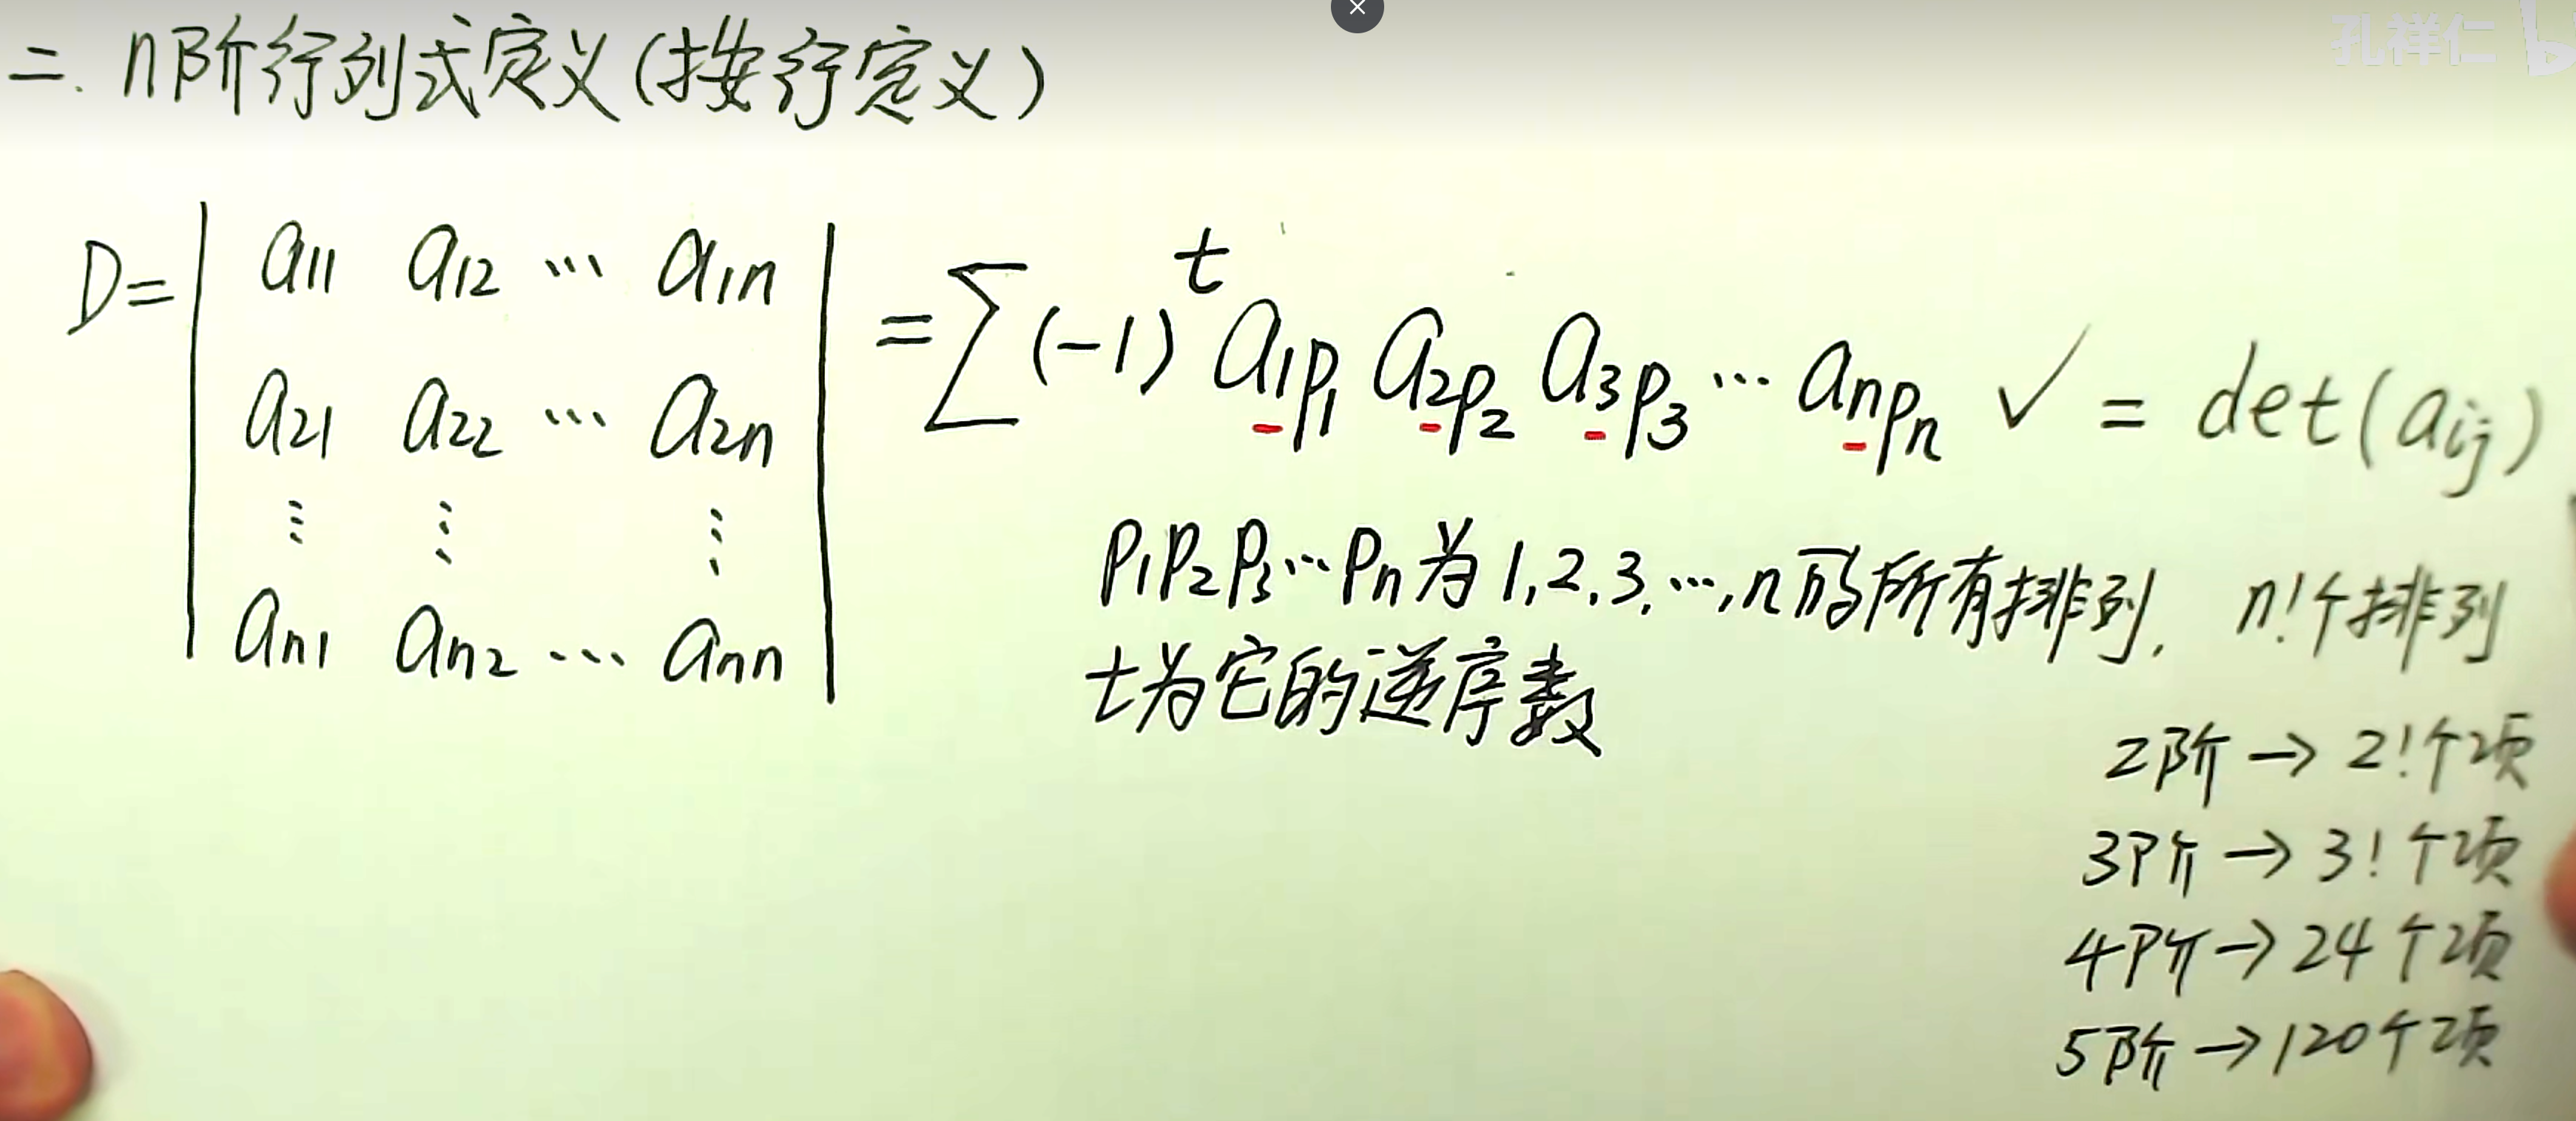 孔祥仁 b
二. n阶行列式定义(按行定义)
D= | a11 a12 … a1n |
| a21 a22 … a2n |
| ⋮ ⋮ ⋮ |
| an1 an2 … ann |
= ∑ (-1)^t a1p1 a2p2 a3p3 … anpn ✓ = det(aij)
p1p2p3…pn为1,2,3,…,n的所有排列, n!个排列
t为它的逆序数
2阶 → 2!个项
3阶 → 3!个项
4阶 → 24个项
5阶 → 120个项